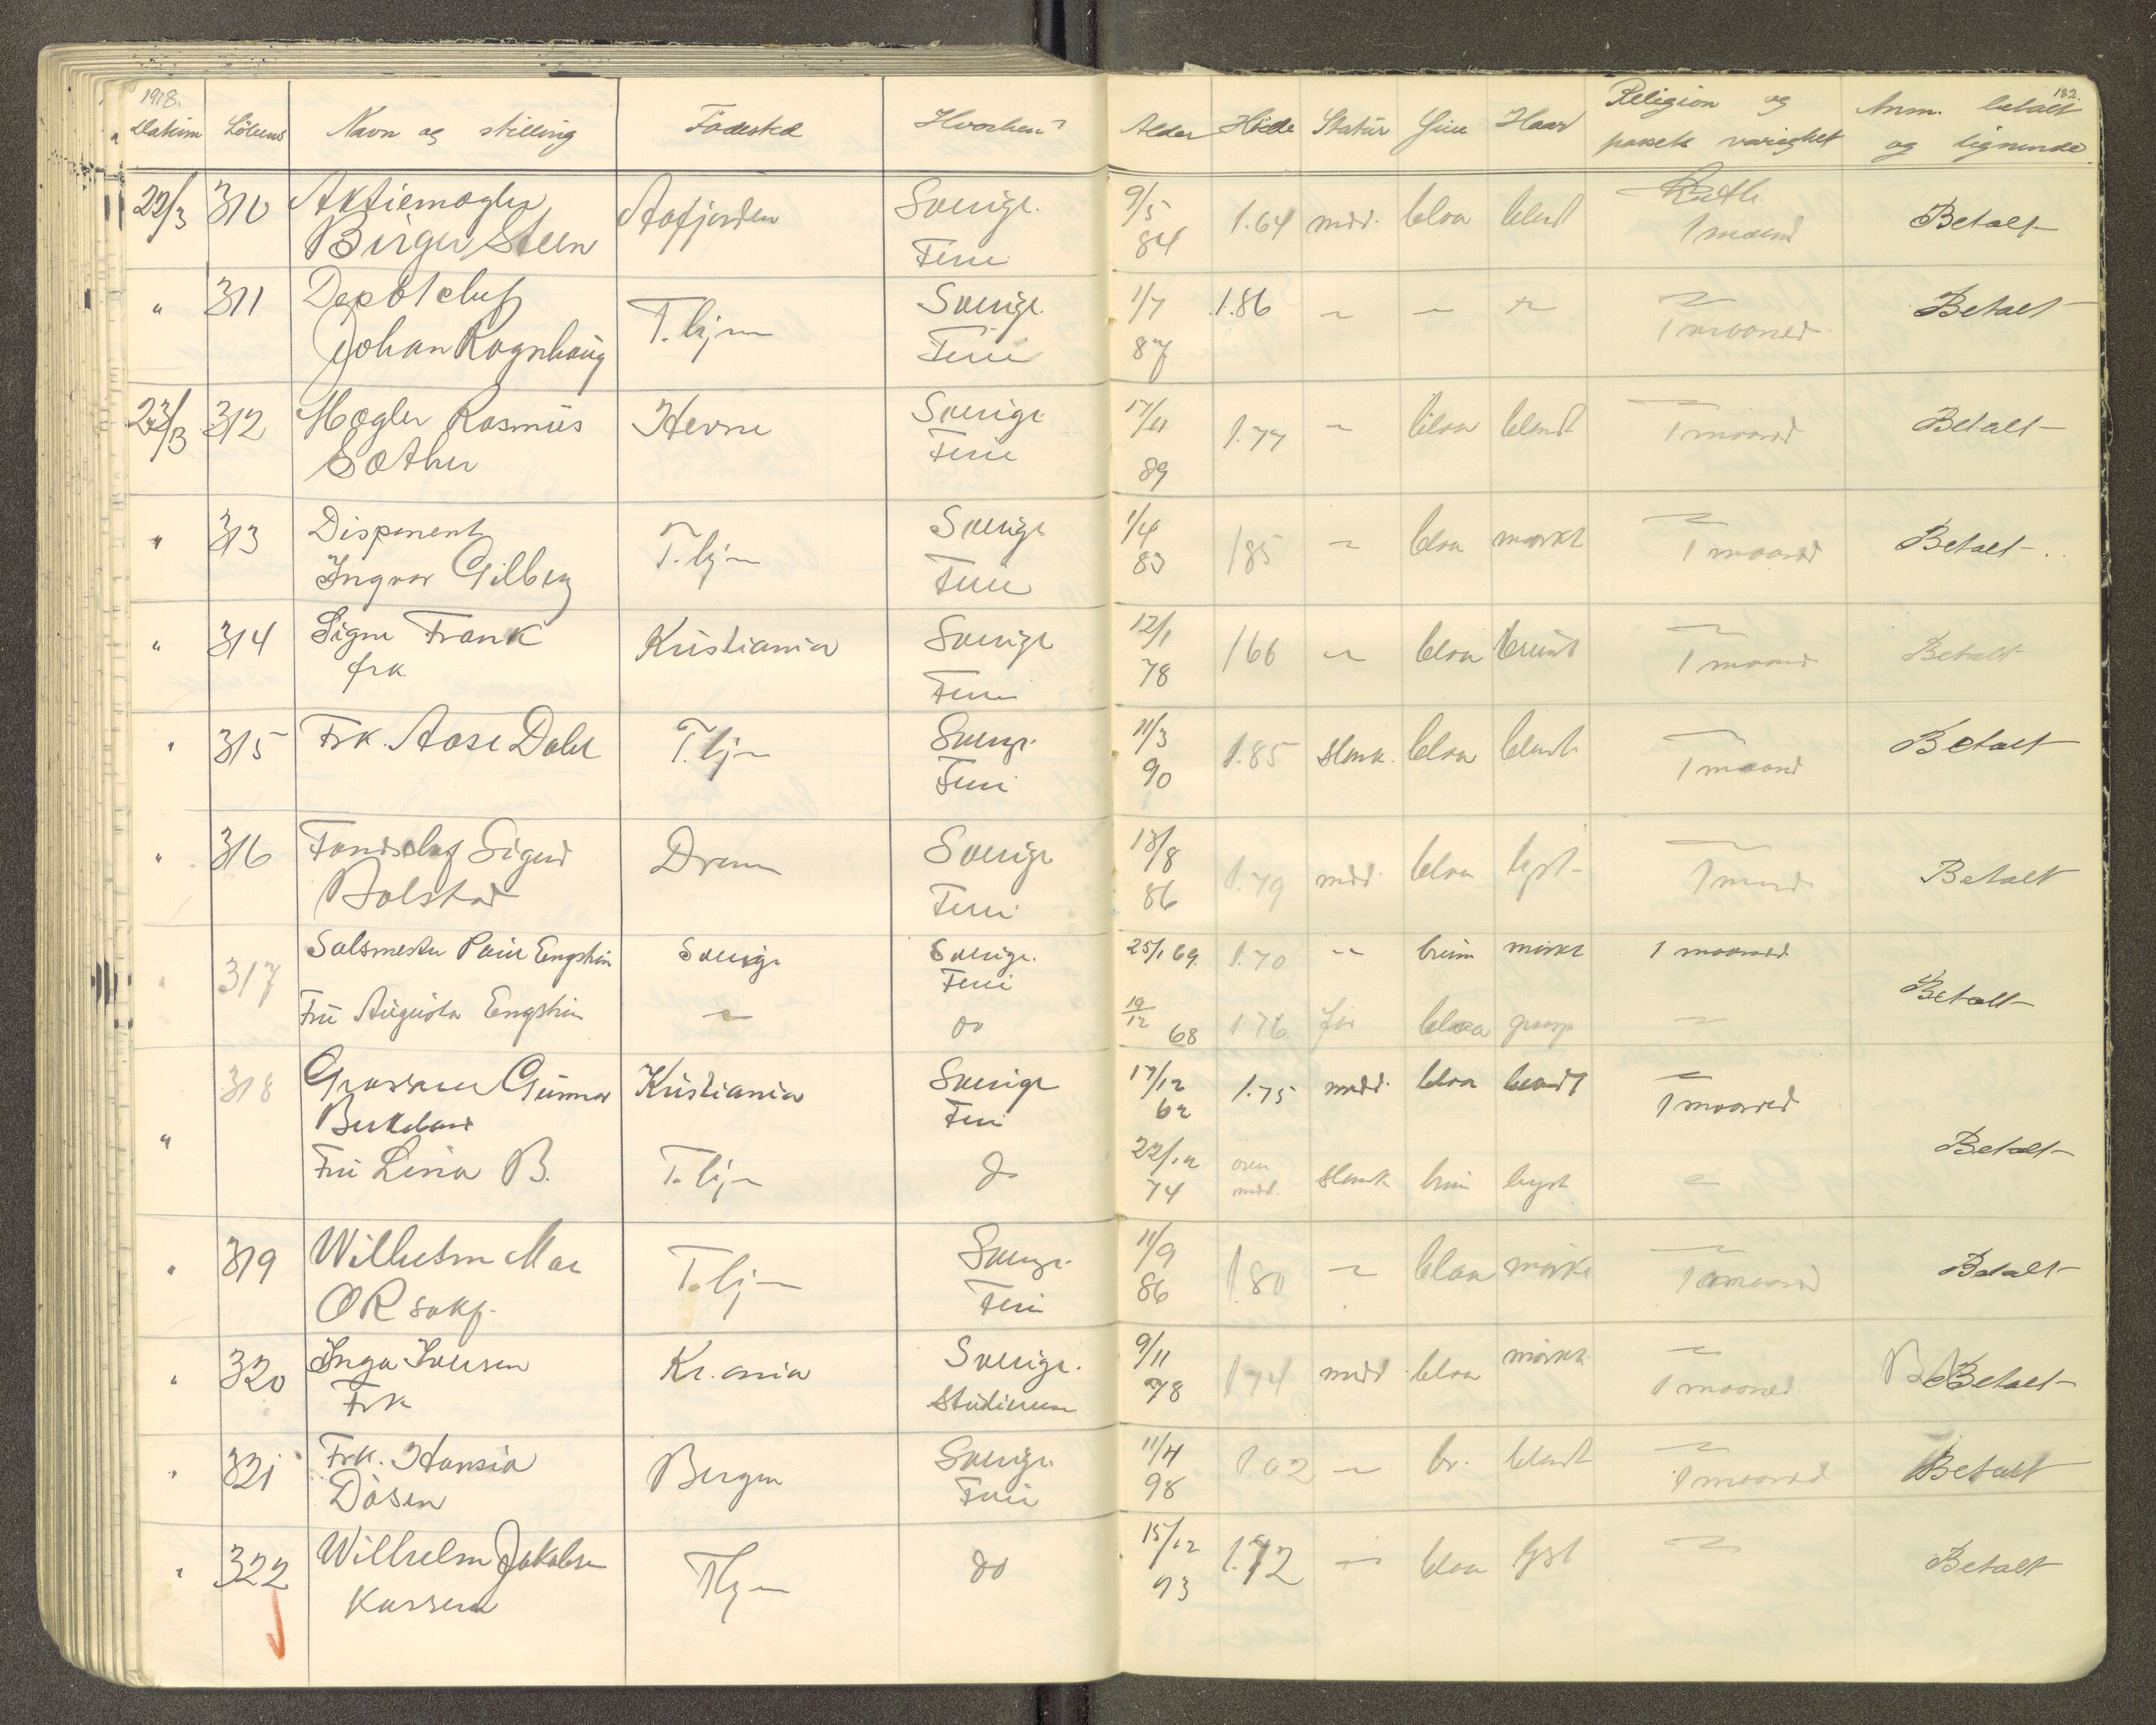 1918. 182.
Datum Löbens Navn og stilling Födested Hvorhen? Alder Höide Statür Öine Haar Religion og passets varighet Anm. betalt og lignende
22/3 310 Aktiemægler Birger Steen Aafjorden Sverige. Ferie 9/5 84 1.64 midd. blaa blond Luth. 1 maaned Betalt
" 311 Depotchef Johan Rognhaug T.hjem Sverige. Ferie 1/7 87 1.86 " " " " 1 maaned Betalt
23/3 312 Mægler Rasmus Sæther Hevne Sverige Ferie 17/11 89 1.77 " blaa blondt " 1 maaned Betalt
" 313 Disponent Ingvar Gilberg T.hjem Sverige Ferie 1/4 83 185 " blaa mörkt " 1 maaned Betalt
" 314 Signe Frank frk. Kristiania Sverige Ferie 12/1 78 166 " blaa brunt " 1 maaned Betalt
" 315 Frk. Aase Dahl T.hjem Sverige Ferie 11/3 90 1.85 slank. blaa blondt " 1 maaned Betalt
" 316 Sigurd Bolstad Sverige Ferie 13/8 86 1.79 midd. blaa lyst " 1 maaned Betalt
" 317 Salsmester Engström Sverige Sverige. Ferie 25/1 69. 1.70 " brun mörkt 1 maaned Betalt
Frü Augusta Engström " do 19/12 68 1.76 blaa " 
" 318 Grosserer Günnar Kristiania Sverige Ferie 17/12 62 1.75 midd. blaa blondt " 1 maaned
Frü Lina B. T.hjem do 22/12 74 over midd. slank brun lyst " Betalt
" 319 Wilhelm Moe OR sakf. T.hjem Sverige. Ferie 11/9 86 1.80 " blaa mörkt " 1 maaned Betalt
" 320 Inga Iversen Frk Kr.ania Sverige. Studierese 9/11 78 1.74 midd. blaa mörkt " 1 maaned Betalt
" 321 Frk. Hansia Dösen Bergen Sverige. Ferie 11/4 98 1.02 " br. blondt " 1 maaned Betalt
" 322 Wilhelm Jakobsen Kasserer Thjem do 15/12 93 1.72 " blaa lyst " Betalt